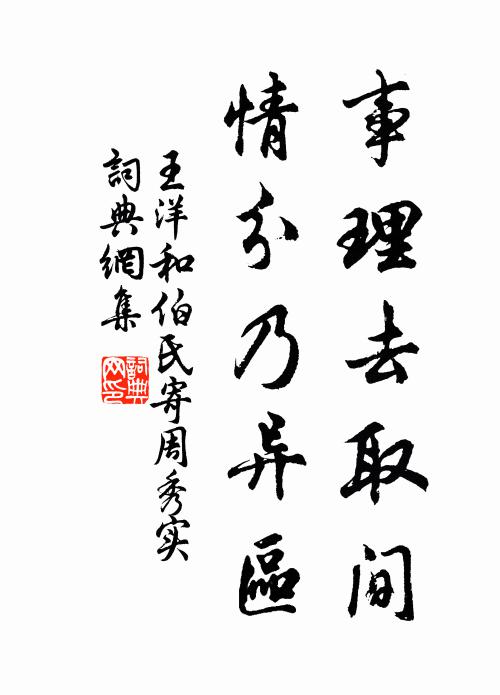 事理去取间
情分乃异區
王洋和伯氏寄周秀实
詞典網集
詞典網印